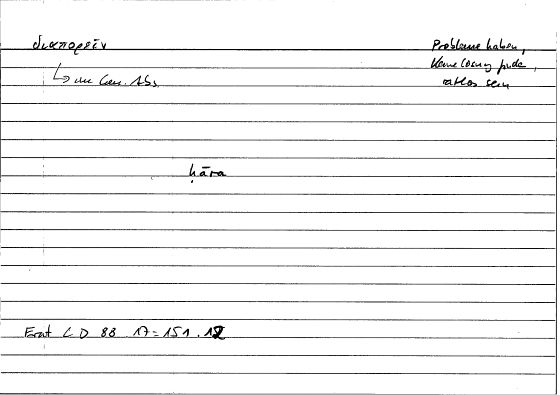 διαπορεῖν
Probleme haben,
keine Lösung finden,
ratlos sein
↳ im Gen. Abs.
ḥāra
Erat CD 88 17 = 151.12